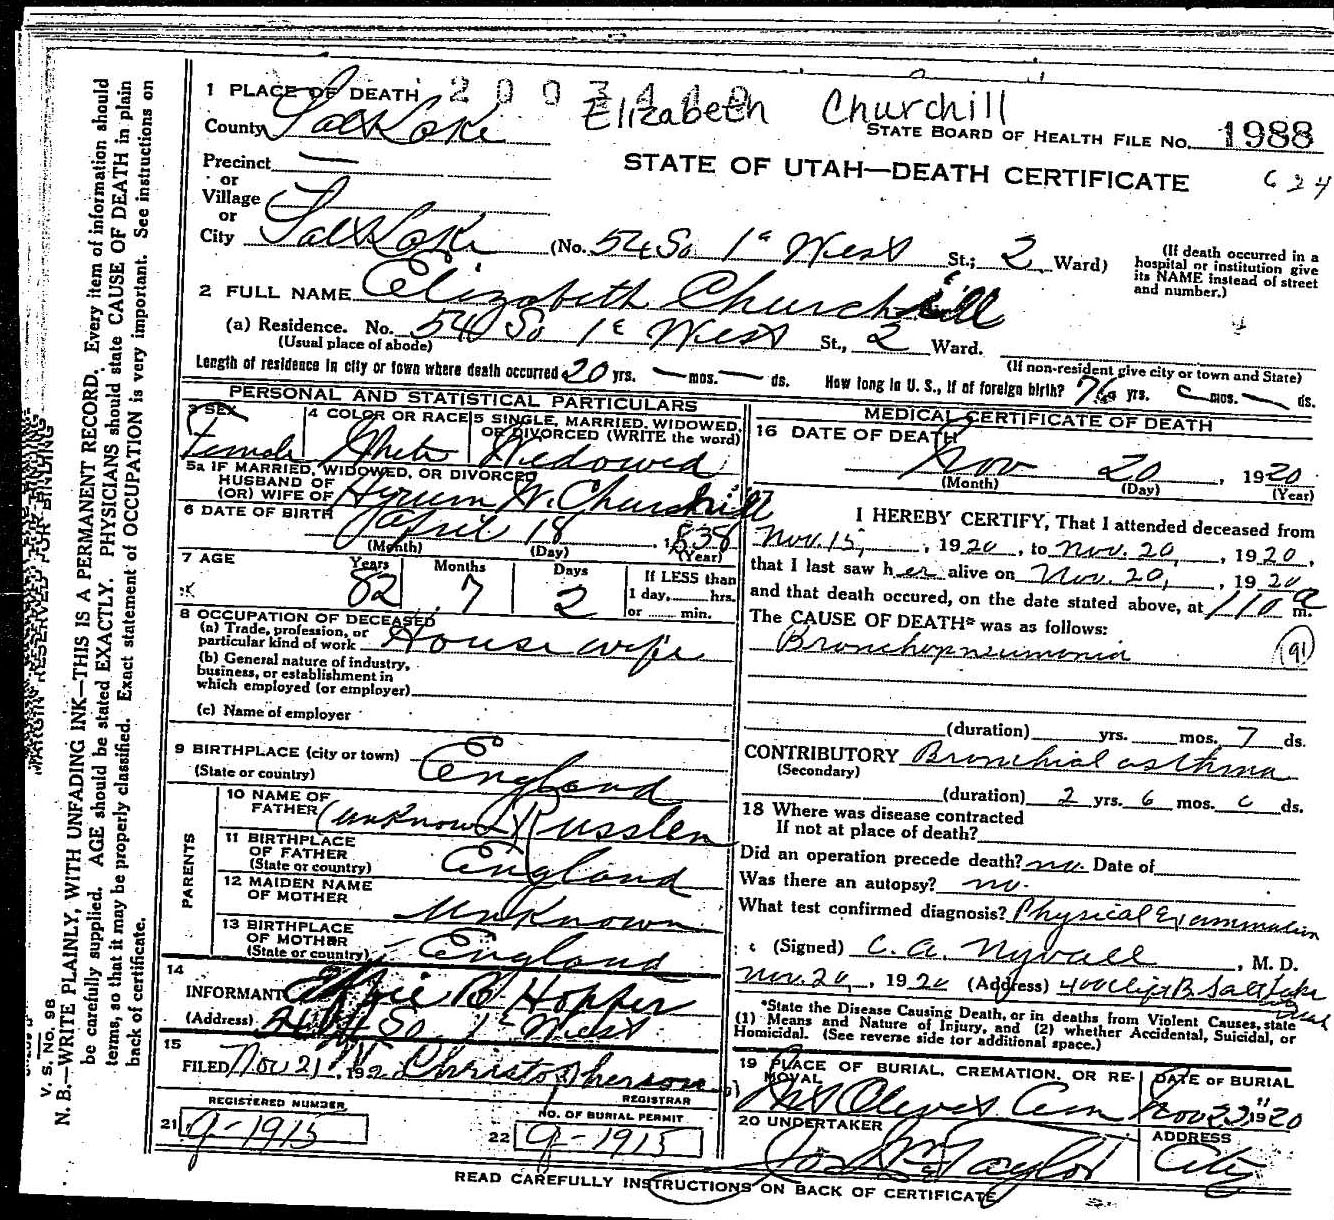 1 PLACE OF DEATH 2003440
Elizabeth Churchill
County Salt Lake
STATE BOARD OF HEALTH FILE NO. 1988
Precinct —
STATE OF UTAH—DEATH CERTIFICATE
624
or
Village
or
City Salt Lake (No. 54 So. 1st West St.; 2 Ward)
(If death occurred in a hospital or institution give its NAME instead of street and number.)
2 FULL NAME Elizabeth Churchill
(a) Residence. No. 54 So 1st West St., 2 Ward.
(Usual place of abode)
(If non-resident give city or town and State)
Length of residence in city or town where death occurred 20 yrs. — mos. — ds. How long in U. S., if of foreign birth? 76 yrs. — mos. — ds.
PERSONAL AND STATISTICAL PARTICULARS
3 SEX Female
4 COLOR OR RACE White
5 SINGLE, MARRIED, WIDOWED, OR DIVORCED (WRITE the word) Widowed
5a IF MARRIED, WIDOWED, OR DIVORCED
HUSBAND OF
(OR) WIFE OF Hyrum W. Churchill
6 DATE OF BIRTH April 18, 1838
(Month) (Day) (Year)
7 AGE Years 82 Months 7 Days 2
If LESS than
1 day, hrs.
or min.
8 OCCUPATION OF DECEASED
(a) Trade, profession, or
particular kind of work House wife
(b) General nature of industry,
business, or establishment in
which employed (or employer)
(c) Name of employer
9 BIRTHPLACE (city or town)
(State or country) England
PARENTS
10 NAME OF
FATHER (unknown) Russlen
11 BIRTHPLACE
OF FATHER
(State or country) England
12 MAIDEN NAME
OF MOTHER Unknown
13 BIRTHPLACE
OF MOTHER
(State or country) England
14
INFORMANT Effie B. Hopper
(Address) So 1st West
15
FILED Nov 21, 192 Christopherson
REGISTRAR
REGISTERED NUMBER
21 9-1915
NO. OF BURIAL PERMIT
22 9-1915
MEDICAL CERTIFICATE OF DEATH
16 DATE OF DEATH
Nov 20, 1920
(Month) (Day) (Year)
I HEREBY CERTIFY, That I attended deceased from
Nov. 15, 1920, to Nov. 20, 1920,
that I last saw her alive on Nov. 20, 1920
and that death occured, on the date stated above, at 110 a m.
The CAUSE OF DEATH* was as follows:
Bronchopneumonia (91)
(duration) yrs. mos. 7 ds.
CONTRIBUTORY Bronchial asthma
(Secondary)
(duration) 2 yrs. 6 mos. 0 ds.
18 Where was disease contracted
If not at place of death?
Did an operation precede death? no. Date of
Was there an autopsy? no.
What test confirmed diagnosis? Physical Examination
(Signed) C. A. Nyvall, M. D.
Nov. 20, 1920 (Address) Salt Lake
*State the Disease Causing Death, or in deaths from Violent Causes, state
(1) Means and Nature of Injury, and (2) whether Accidental, Suicidal, or
Homicidal. (See reverse side for additional space.)
19 PLACE OF BURIAL, CREMATION, OR REMOVAL
Mt Olivet Cem
DATE OF BURIAL
Nov 22 1920
20 UNDERTAKER
Jos. Taylor
ADDRESS
City
READ CAREFULLY INSTRUCTIONS ON BACK OF CERTIFICATE
MARGIN RESERVED FOR BINDING
V. S. NO. 98
N. B.—WRITE PLAINLY, WITH UNFADING INK—THIS IS A PERMANENT RECORD. Every item of information should
be carefully supplied. AGE should be stated EXACTLY. PHYSICIANS should state CAUSE OF DEATH in plain
terms, so that it may be properly classified. Exact statement of OCCUPATION is very important. See instructions on
back of certificate.